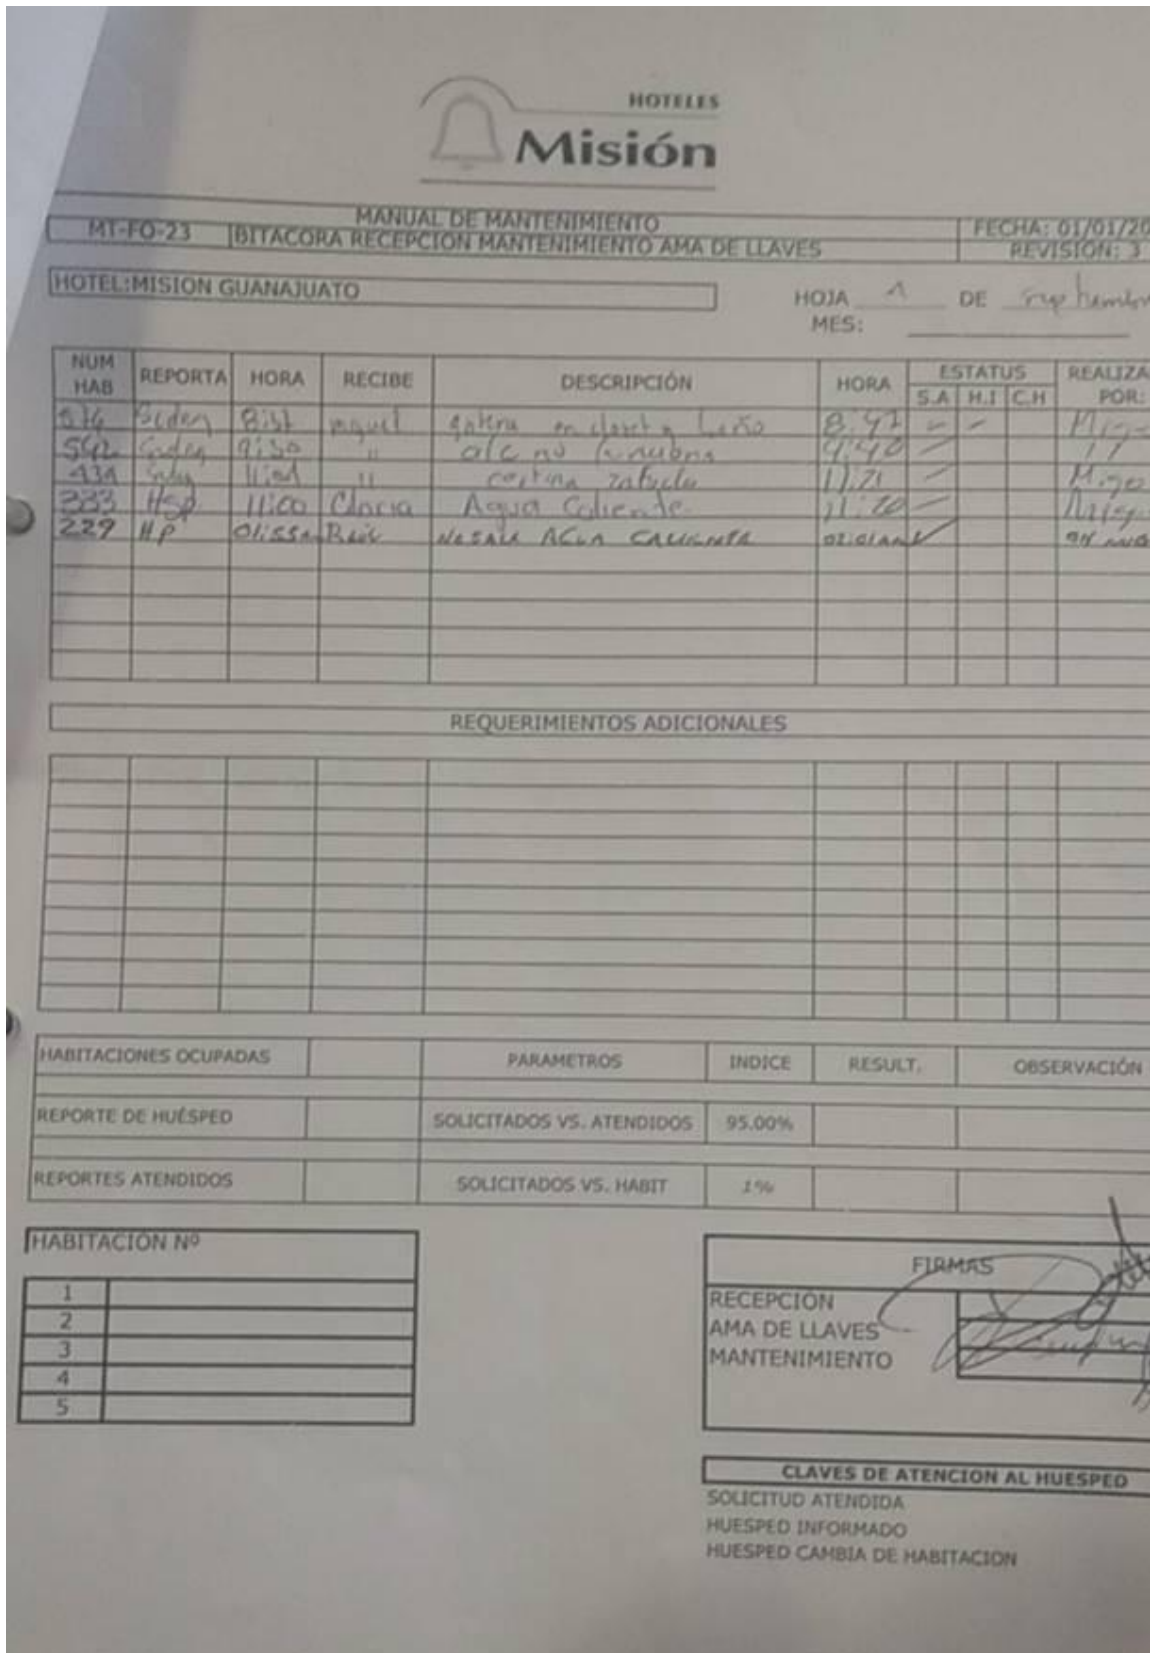 HOTELES
Misión
MANUAL DE MANTENIMIENTO
MT-FO-23 BITACORA RECEPCION MANTENIMIENTO AMA DE LLAVES
FECHA: 01/01/20
REVISIÓN: 3
HOTEL:MISION GUANAJUATO
HOJA 1 DE
MES:
NUM HAB REPORTA HORA RECIBE DESCRIPCIÓN HORA ESTATUS REALIZA POR:
S.A H.I C.H
en closet y baño 8:47
542 9:30 " a/c no 9:40 "
434 " cortina zafada
333 HSP 11:00 Gloria Agua Caliente 11:20
229 HP Raúl NO SALE AGUA CALIENTE 02:01AM
REQUERIMIENTOS ADICIONALES
HABITACIONES OCUPADAS PARAMETROS INDICE RESULT. OBSERVACIÓN
REPORTE DE HUÉSPED SOLICITADOS VS. ATENDIDOS 95.00%
REPORTES ATENDIDOS SOLICITADOS VS. HABIT 1%
HABITACIÓN Nº
1
2
3
4
5
FIRMAS
RECEPCIÓN
AMA DE LLAVES
MANTENIMIENTO
CLAVES DE ATENCION AL HUESPED
SOLICITUD ATENDIDA
HUESPED INFORMADO
HUESPED CAMBIA DE HABITACION